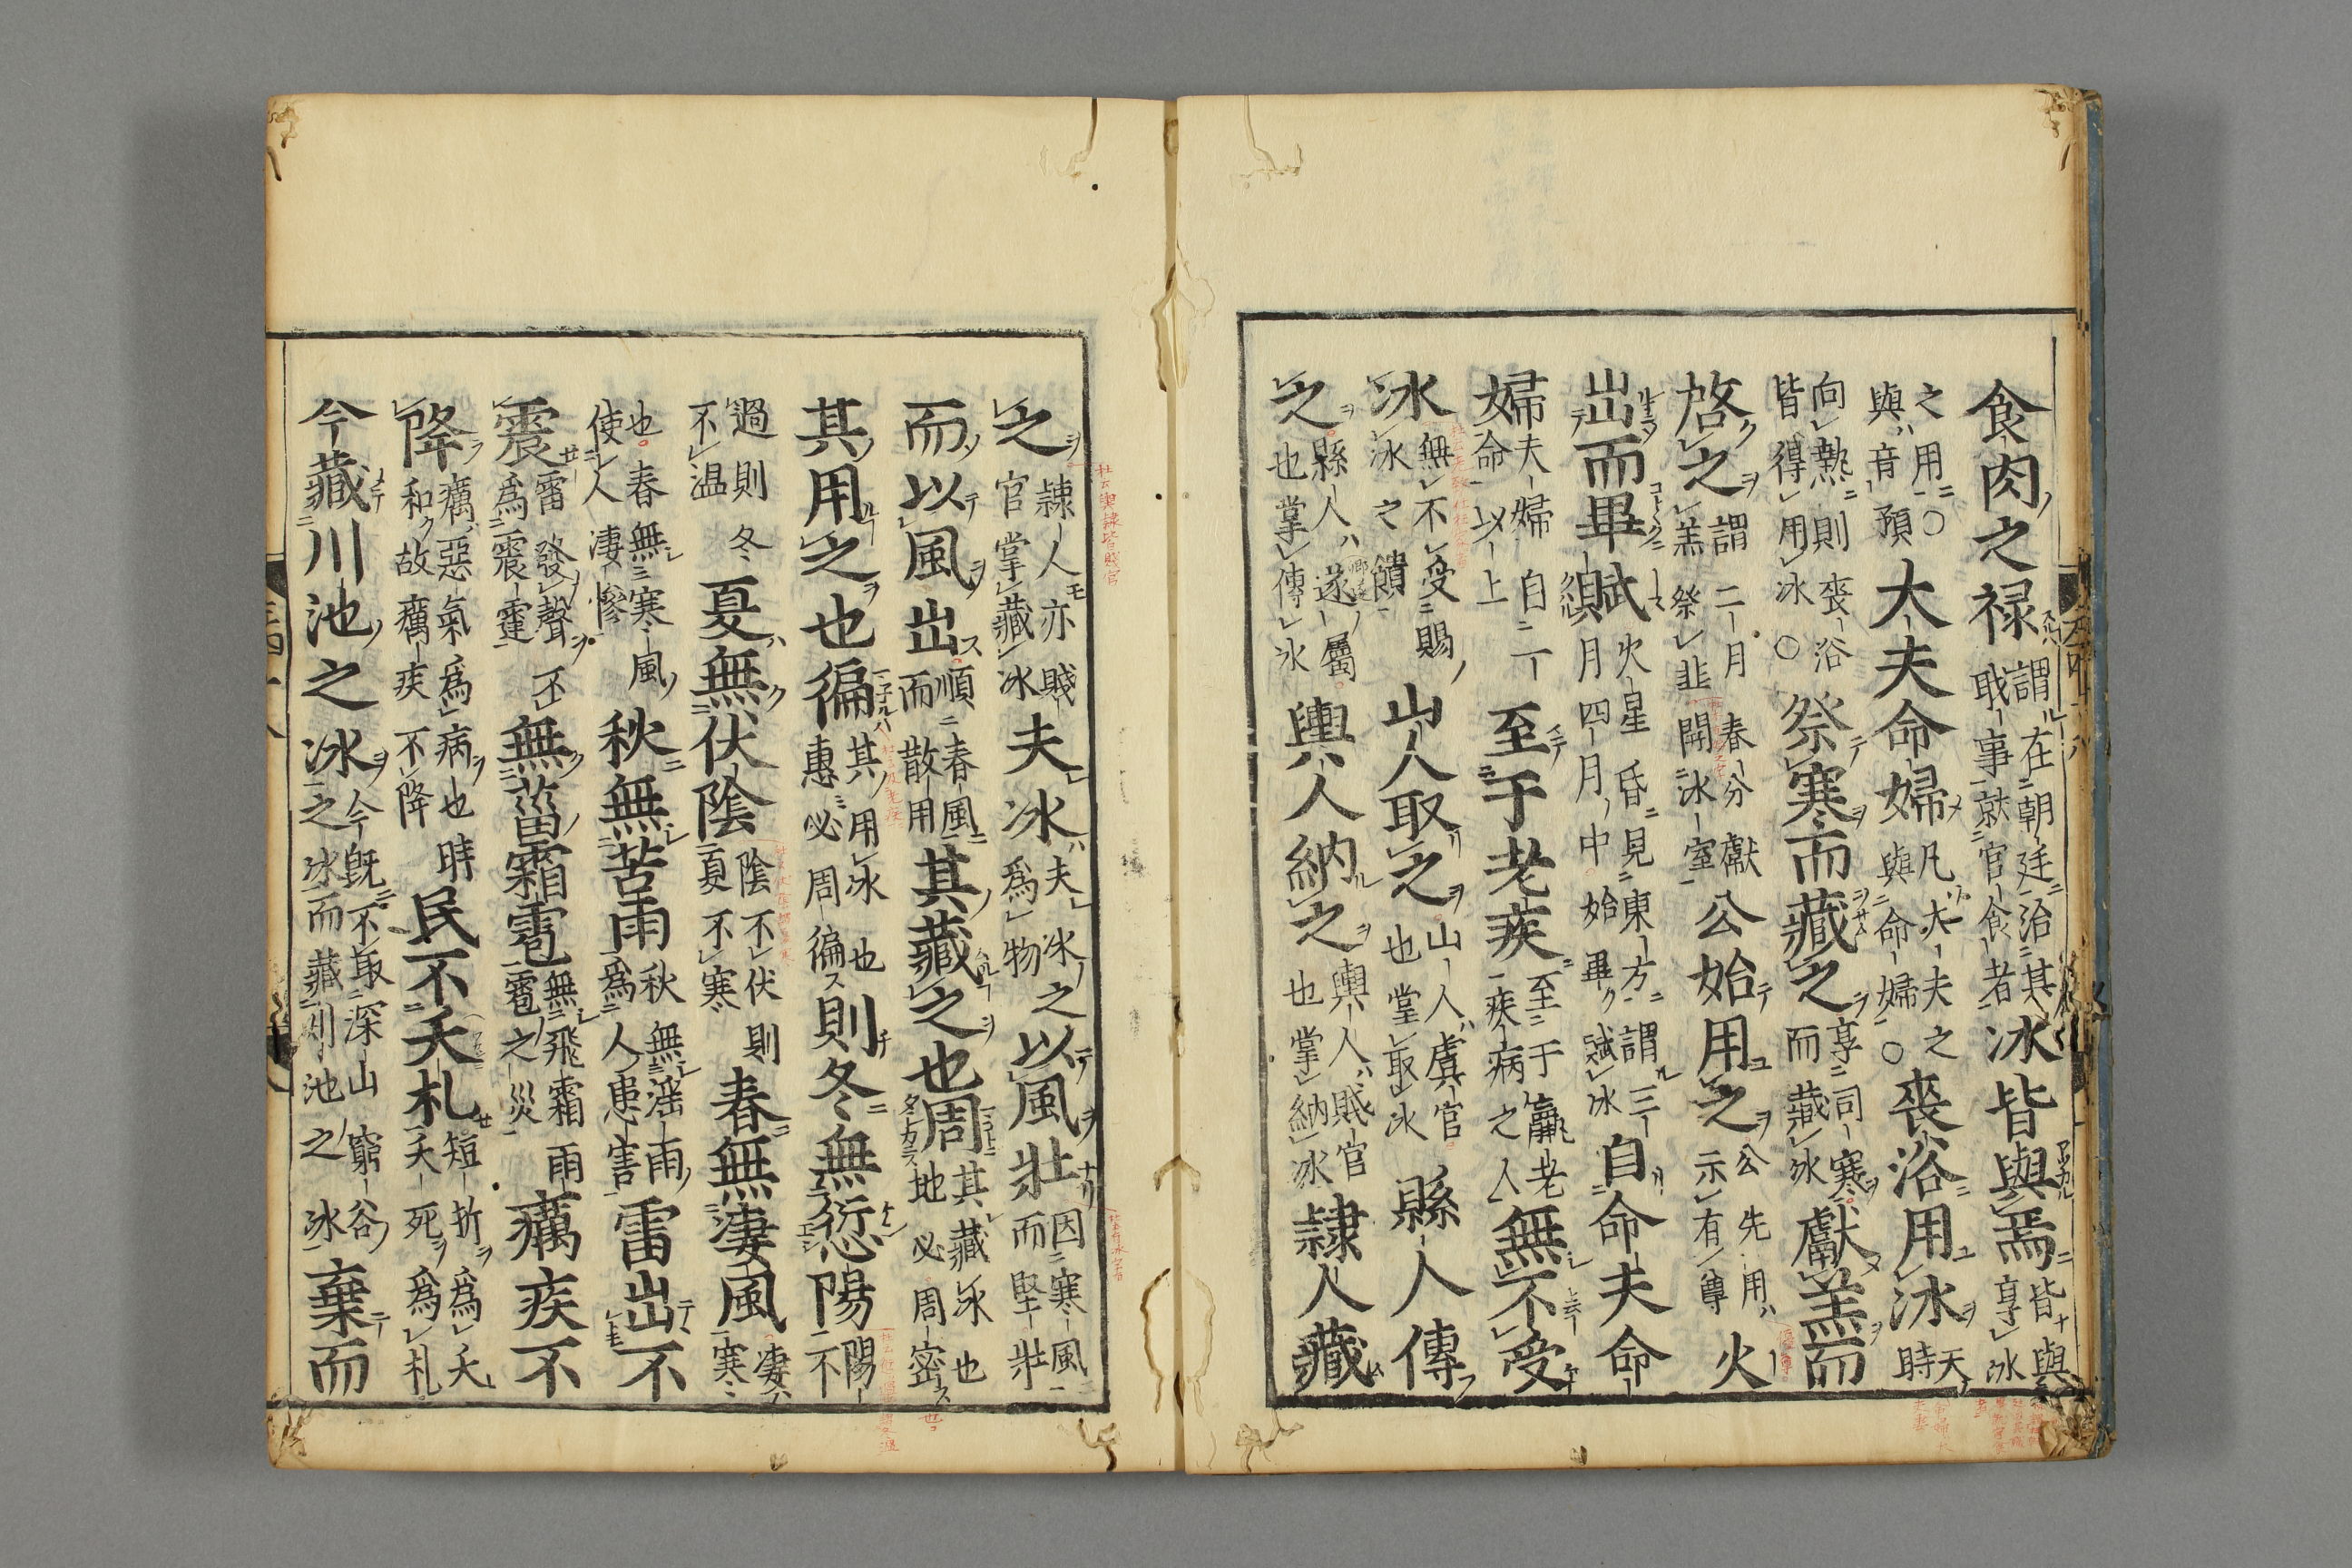 食肉之禄謂在朝廷治其職事就官食者冰皆與焉皆與享冰
之用○與音預大夫命婦凡大夫之與命婦○喪浴用冰天時
向熱則喪浴皆得用冰○祭寒而藏之享司寒而藏冰獻羔而
啓之謂二月春分獻羔祭韭開冰室公始用之公先用示有尊火
出而畢賦火星昏見東方謂三月四月中始畢賦冰自命夫命
婦夫婦自二命以上至于老疾至于羸老疾病之人無不受
冰無不受賜冰之饋山人取之山人虞官也掌取冰縣人傳
之縣人遂屬也掌傳冰輿人納之輿人賎官也掌納冰隷人藏
之隷人亦賤官掌藏冰夫冰夫冰之爲物以風壯因寒風而堅壯
而以風出順春風而散用其藏之也周其藏冰也地必周密
其用之也徧其用冰也惠必周徧則冬無愆陽陽不
過則冬不温夏無伏陰陰不伏則夏不寒春無凄風凄寒
也春無寒風使人凄慘秋無苦雨秋無滛雨爲人患害雷出不
震雷發聲不爲震霆無菑霜雹無飛霜雨雹之災癘疾不
降癘惡氣爲病也時和故癘疾不降民不夭札短折爲夭夭死爲札
今藏川池之冰今既不取深山窮谷之冰而藏則池之冰棄而